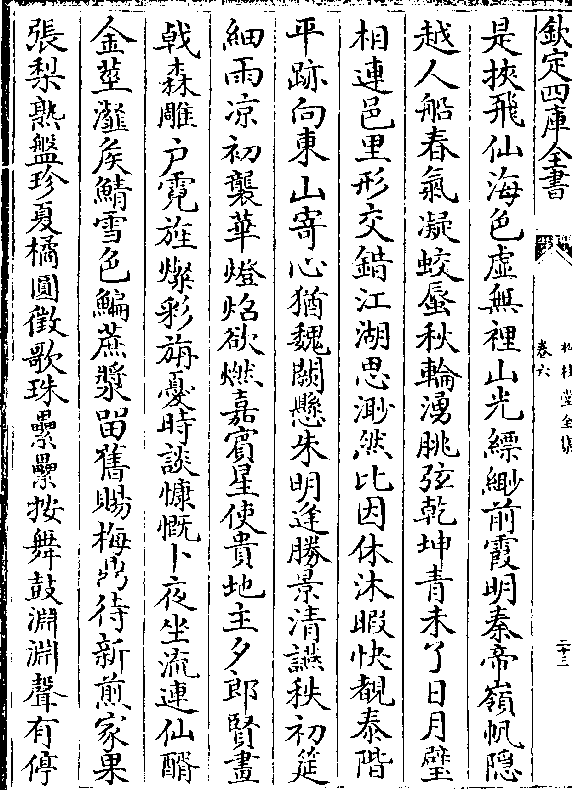 欽定四庫全書
卷六
二十三
是挾飛仙海色虛無裡山光縹緲前霞明秦帝嶺帆隐
越人船春氣凝蛟蜃秋輪湧朓弦乾坤青未了日月璧
相連邑里形交錯江湖思渺然比因休沐暇快覩泰階
平跡向東山寄心猶魏闕懸朱明逢勝景清讌秩初筵
細雨凉初襲華燈焰欲燃嘉賓星使貴地主夕郎賢畫
戟森雕户霓旌燦彩旃憂時談慷慨卜夜坐流連仙醑
金莖灔矦鯖雪色鯿蔗漿留舊賜梅鼎待新煎家果
張梨熟盤珍夏橘圓徵歌珠纍纍按舞鼓淵淵聲有停